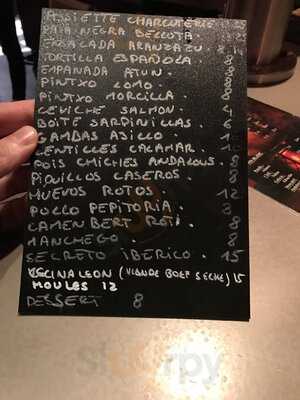 ASSIETTE CHARCUTERIE
PATA NEGRA BELLOTA.
ENSALADA ARANZAZU.
TORTILLA ESPAÑOLA. 8
EMPANADA ATUN. 8
PINTXO LOMO. 8
PINTXO MORCILLA. 8
CEVICHE SALMON. 4
BOITE SARDINILLAS. 6
GAMBAS AJILLO.
LENTILLES CALAMAR.
POIS CHICHES ANDALOUS. 8
PIQUILLOS CASEROS. 8
HUEVOS ROTOS. 12
POLLO PEPITORIA. 8
CAMENBERT ROTI. 8
MANCHEGO. 8
SECRETO IBERICO. 15
CECINA LEON (VIANDE BOEF SECHE) 15
MOULES 12
DESSERT 8